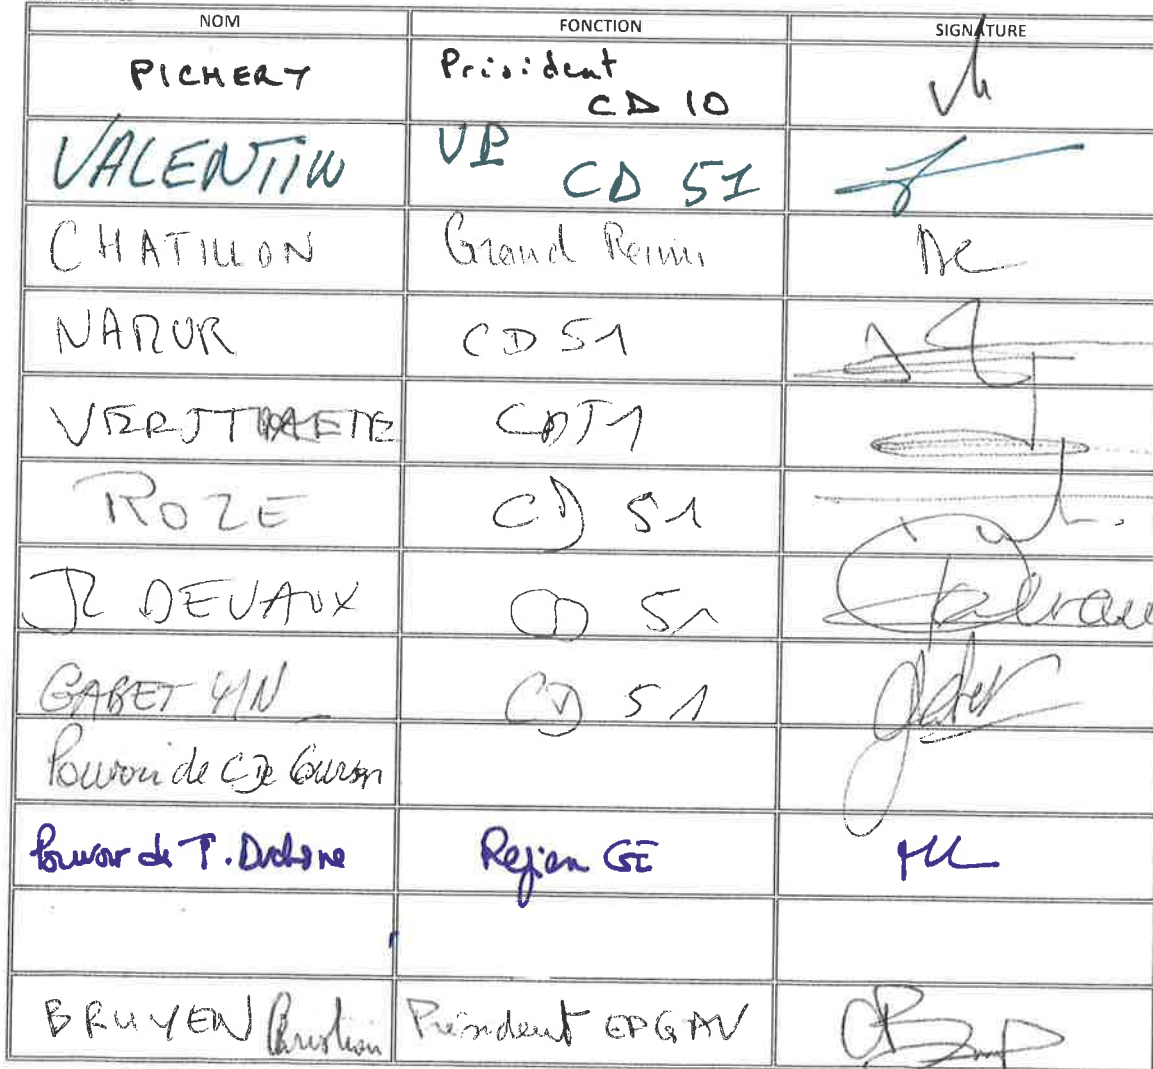 NOM FONCTION SIGNATURE
PICHERY Président
CD 10
VALENTIN VP
CD 51
CHATILLON Grand Reims
NAMUR CD 51
VERSTRAETE CD51
ROZE CD 51
JR DEVAUX CD 51
GABET CD 51
Pouvoir de C De Courson
Pouvoir de T. Région GE
BRUYEN Christian Président EPGAV